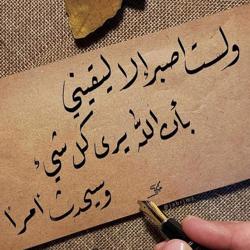 ولست اصبر إلا ليقيني
بأن الله يرى كل شيء
وسيحدث أمرا